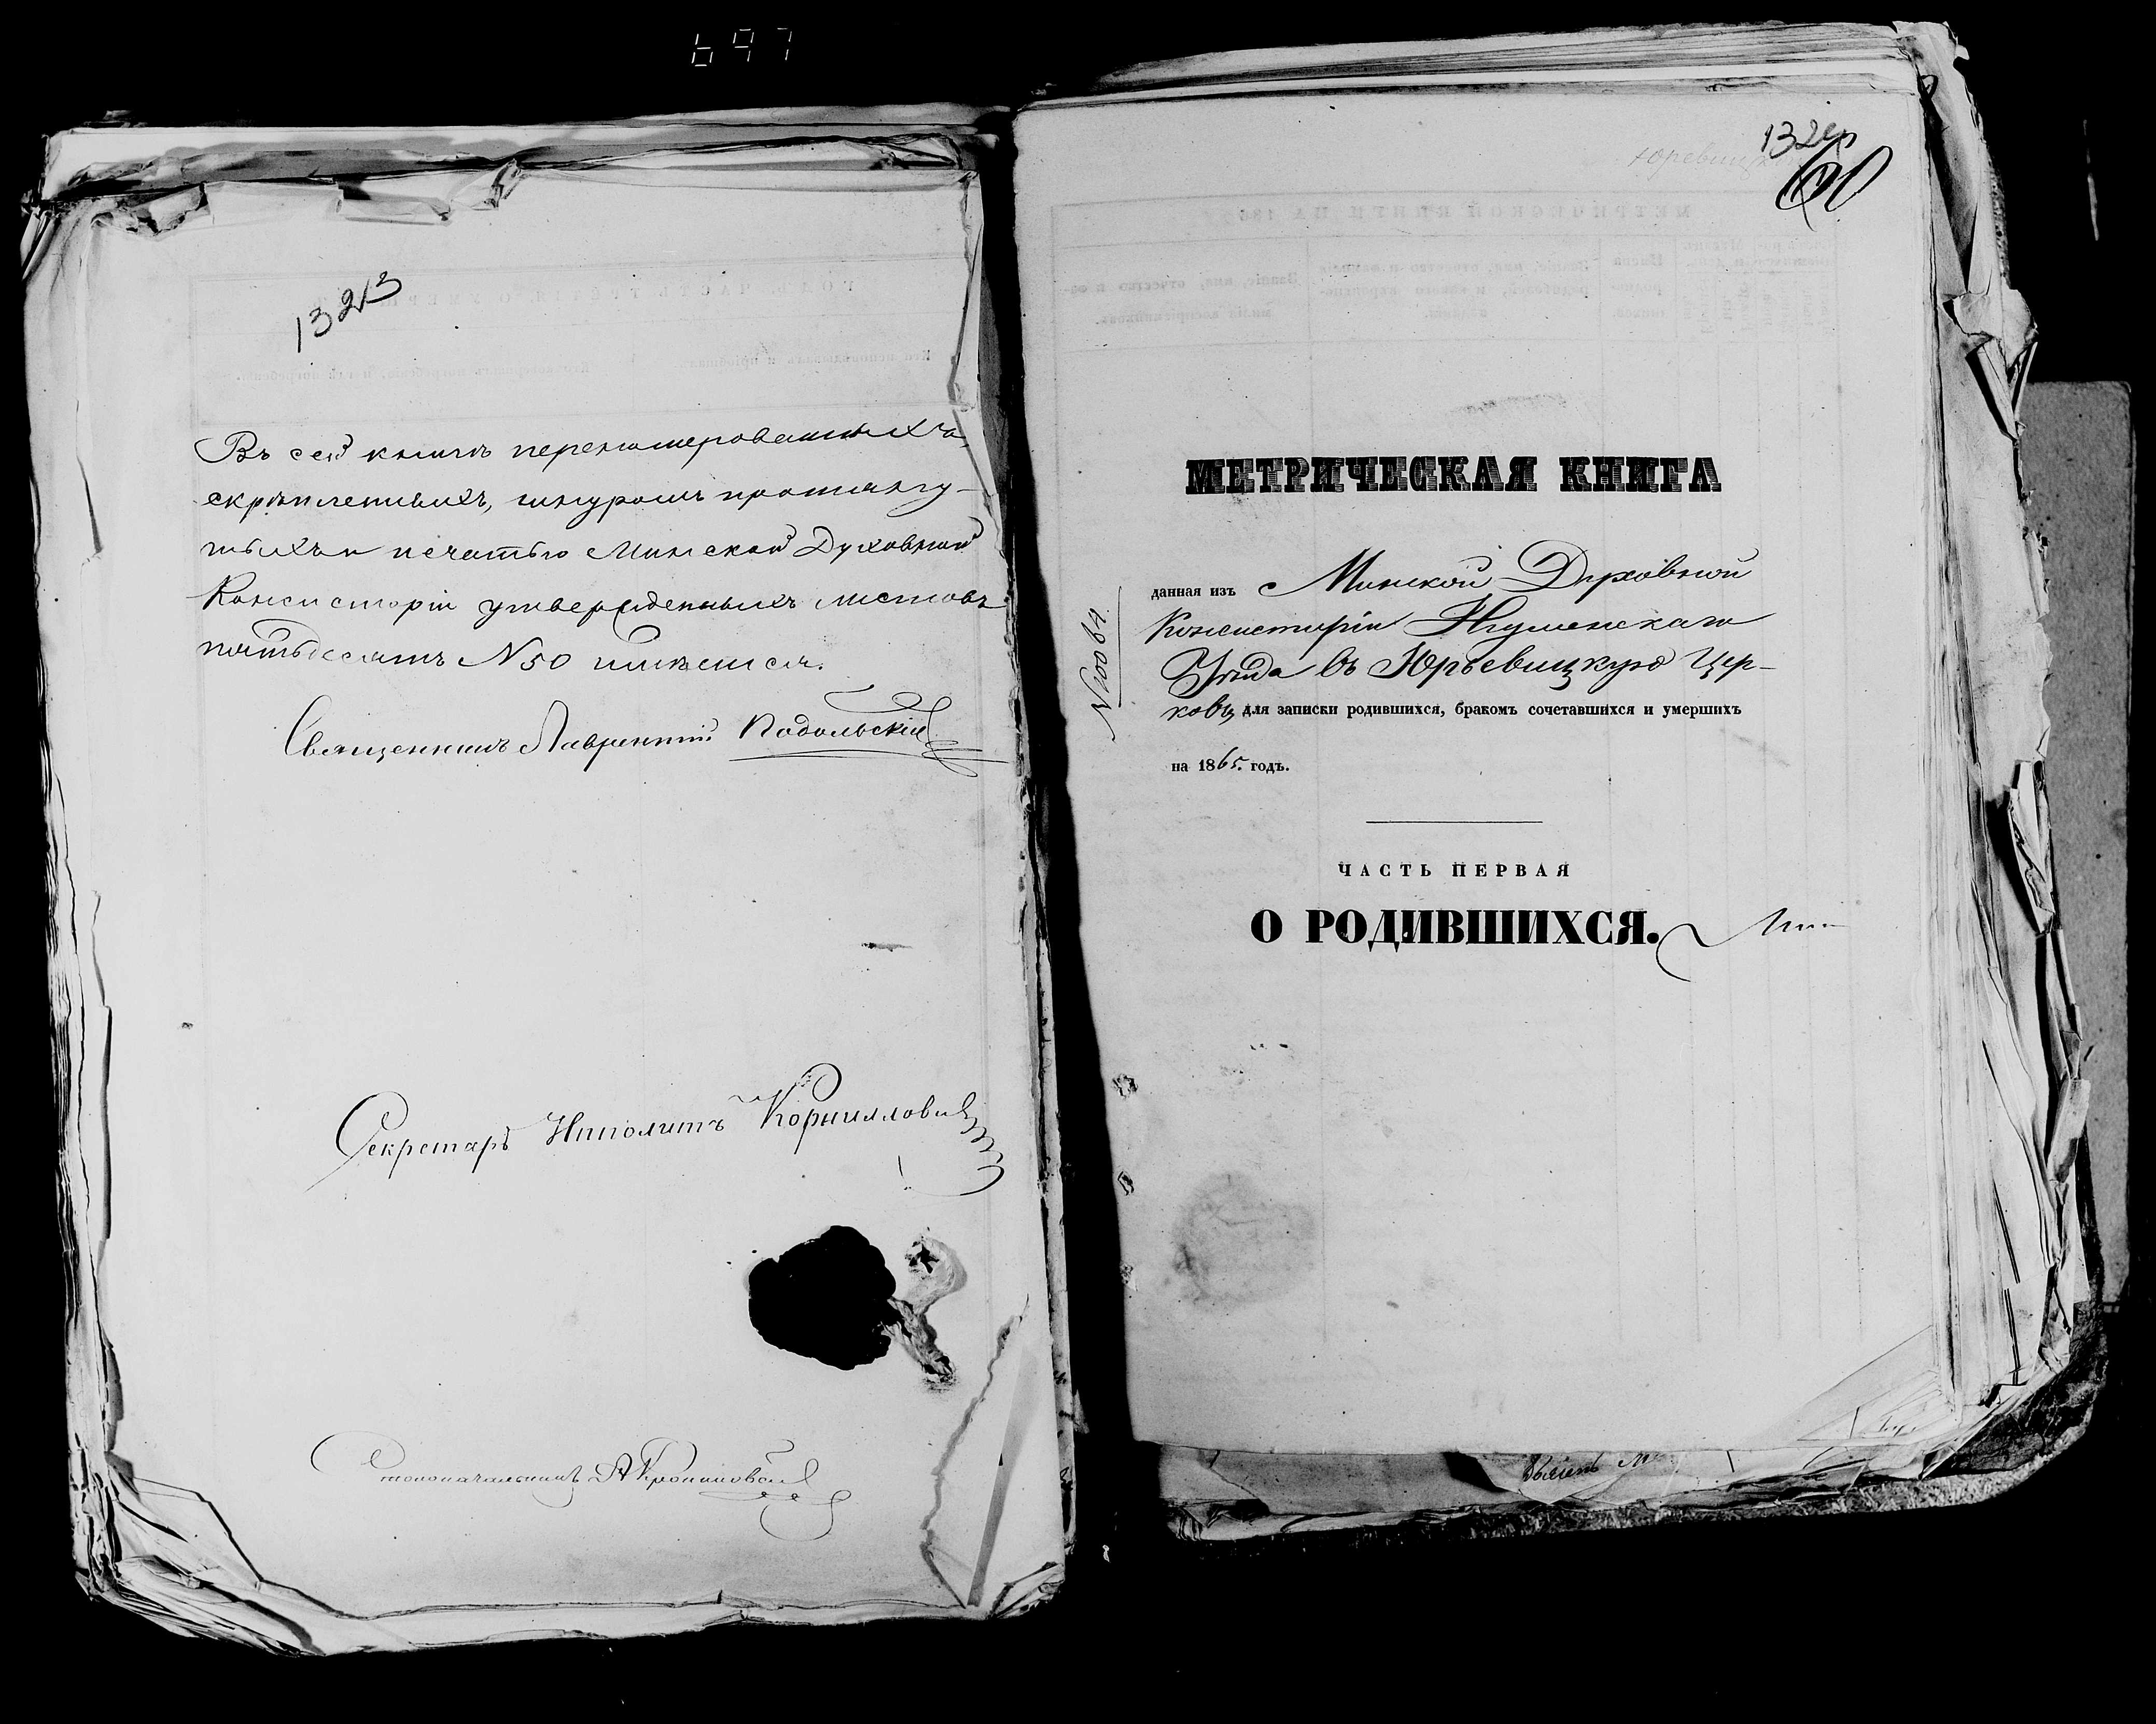 697
1323
Въ сей книгѣ перенумерованныхъ,
скрѣпленныхъ, шнуромъ протягну-
тыхъ и печатью Минской Духовной
Консисторіи утвержденныхъ листовъ
пятьдесятъ N 50 имѣется.
Священникъ Лаврентій Подольскій
Секретарь Ипполитъ Корнилловичъ
Столоначальникъ
1324
МЕТРИЧЕСКАЯ КНИГА
данная изъ Минской Духовной
Консисторіи Игуменскаго
Уѣзда въ Юрьевицкую Цер-
ковь для записки родившихся, бракомъ сочетавшихся и умершихъ
на 1865. годъ.
ЧАСТЬ ПЕРВАЯ
О РОДИВШИХСЯ.